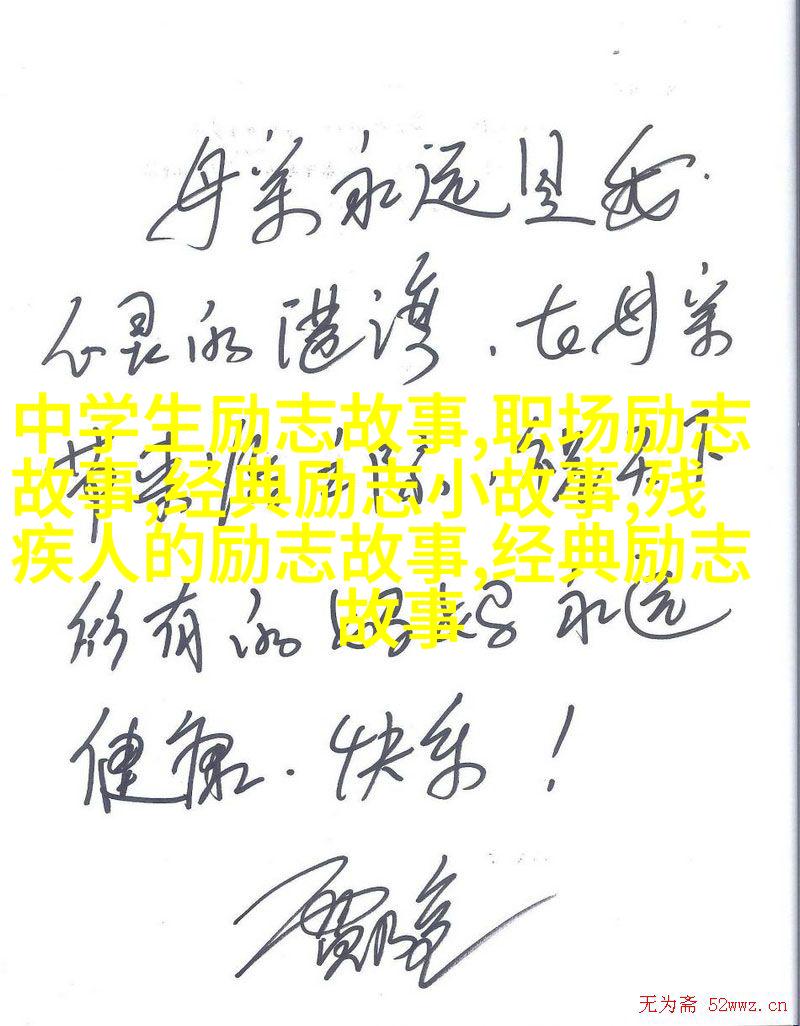 母亲永远是我
心灵的港湾，在母亲
节来临之际，祝天下
所有的妈妈永远
健康．快乐！
中学生励志故事,职场励志
故事,经典励志小故事,残
疾人的励志故事,经典励志
故事
无为斋 52wwz.cn